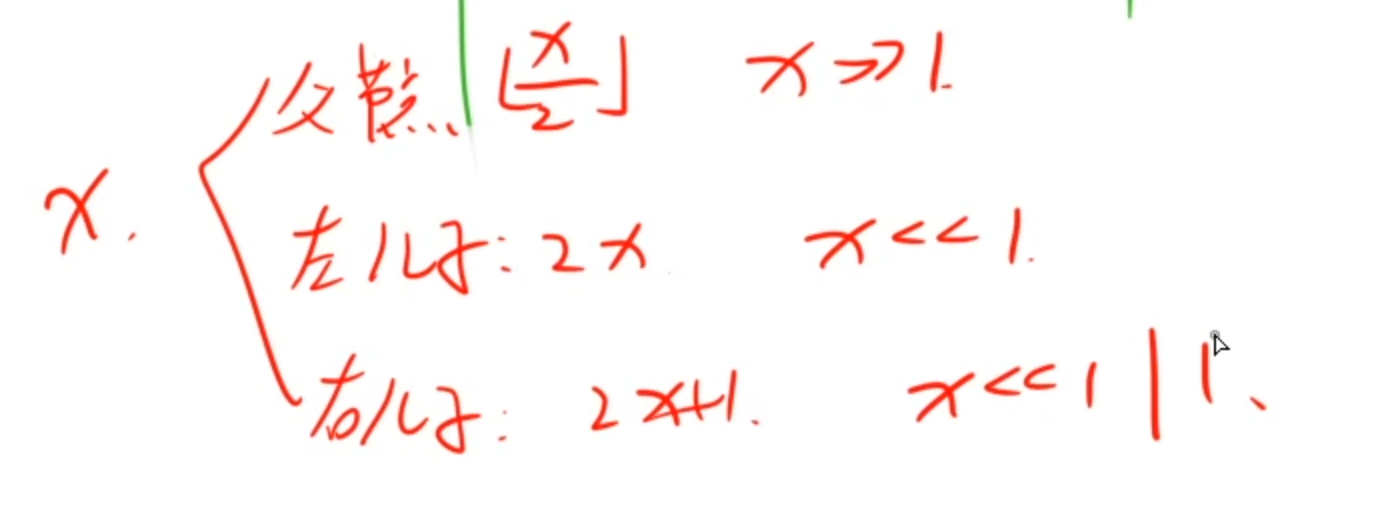 父节点 ⌊x/2⌋ x>>1.
x.
左儿子: 2x x<<1.
右儿子: 2x+1. x<<1|1、